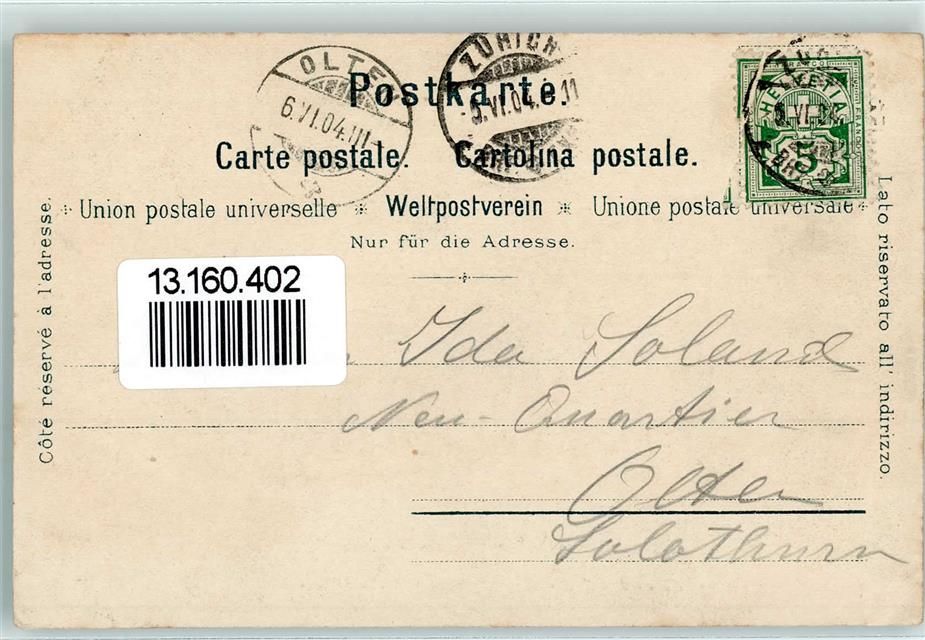 Postkarte.
Carte postale. Cartolina postale.
Union postale universelle Weltpostverein Unione postale universale
Nur für die Adresse.
Côté réservé à l'adresse.
Lato riservato all' indirizzo.
OLTEN
6.VI.04.III
ZÜRICH
5.VI.04. 11
FRANCO
HELVETIA
5
13.160.402
Ida Soland
Neu-Quartier
Olten
Solothurn